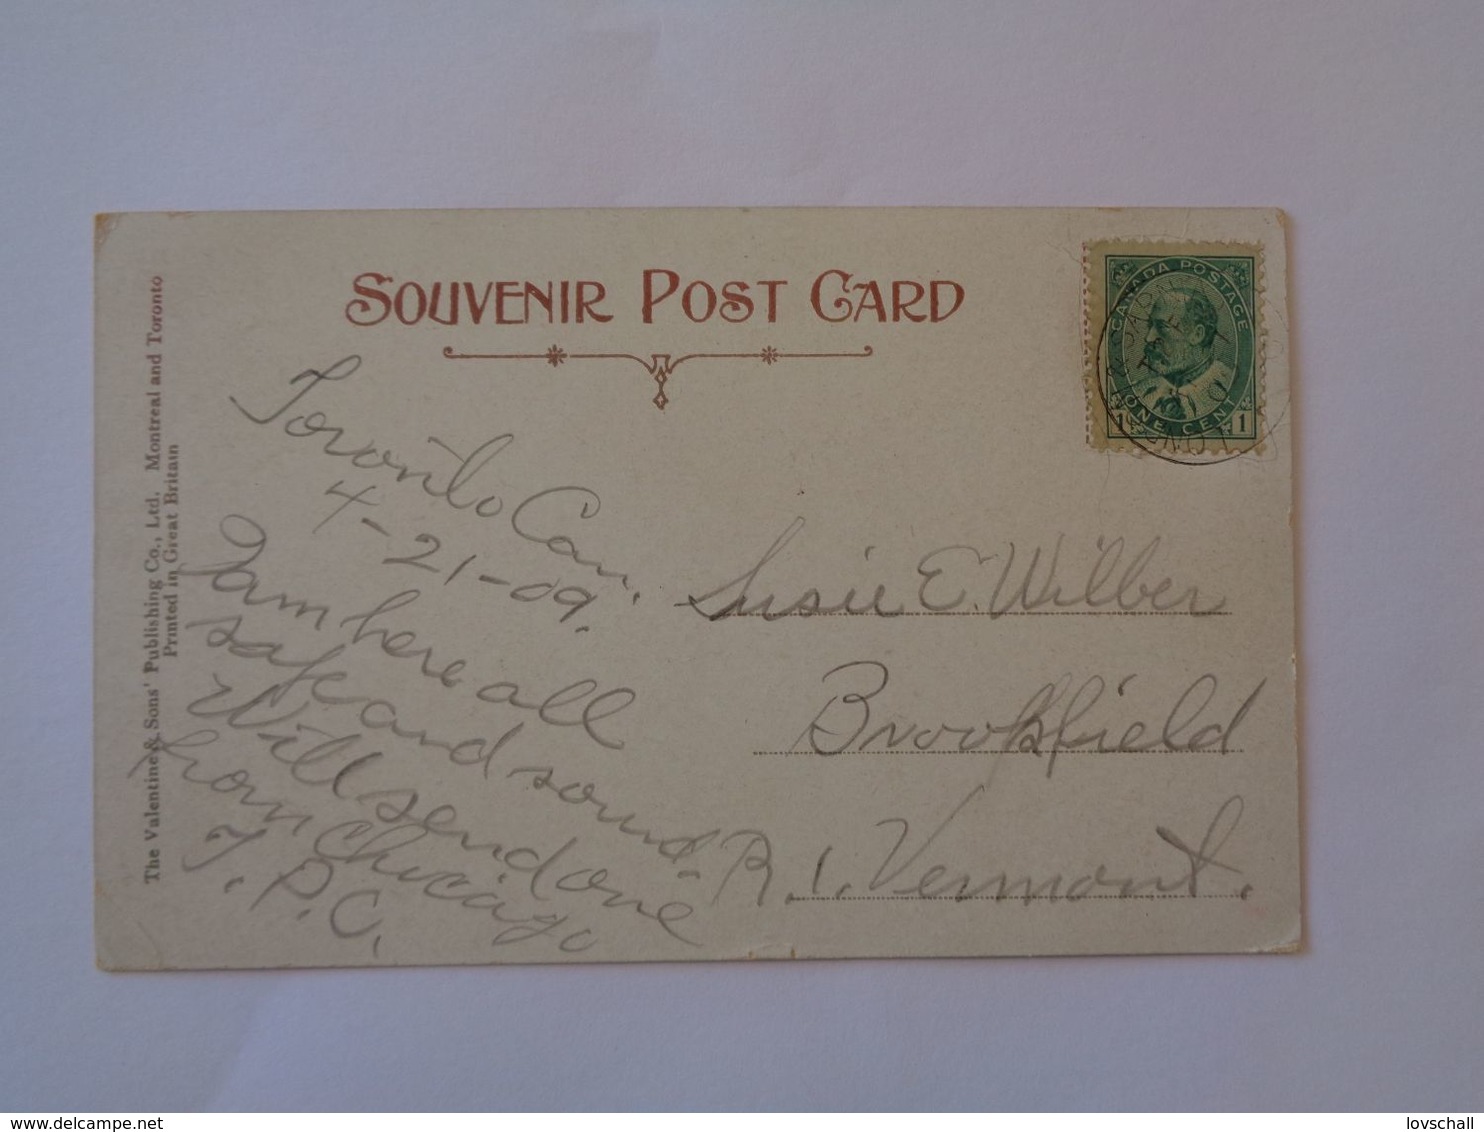 SOUVENIR POST CARD
The Valentine & Sons' Publishing Co., Ltd. Montreal and Toronto
Printed in Great Britain
CANADA POSTAGE
1 ONE CENT 1
Toronto Can.
4-21-09.
I am here all
safe and sound.
Will send one
from Chicago
T. P. C.
Susie E. Wilber
Brookfield
R. 1. Vermont.
delcampe.net
lovschall